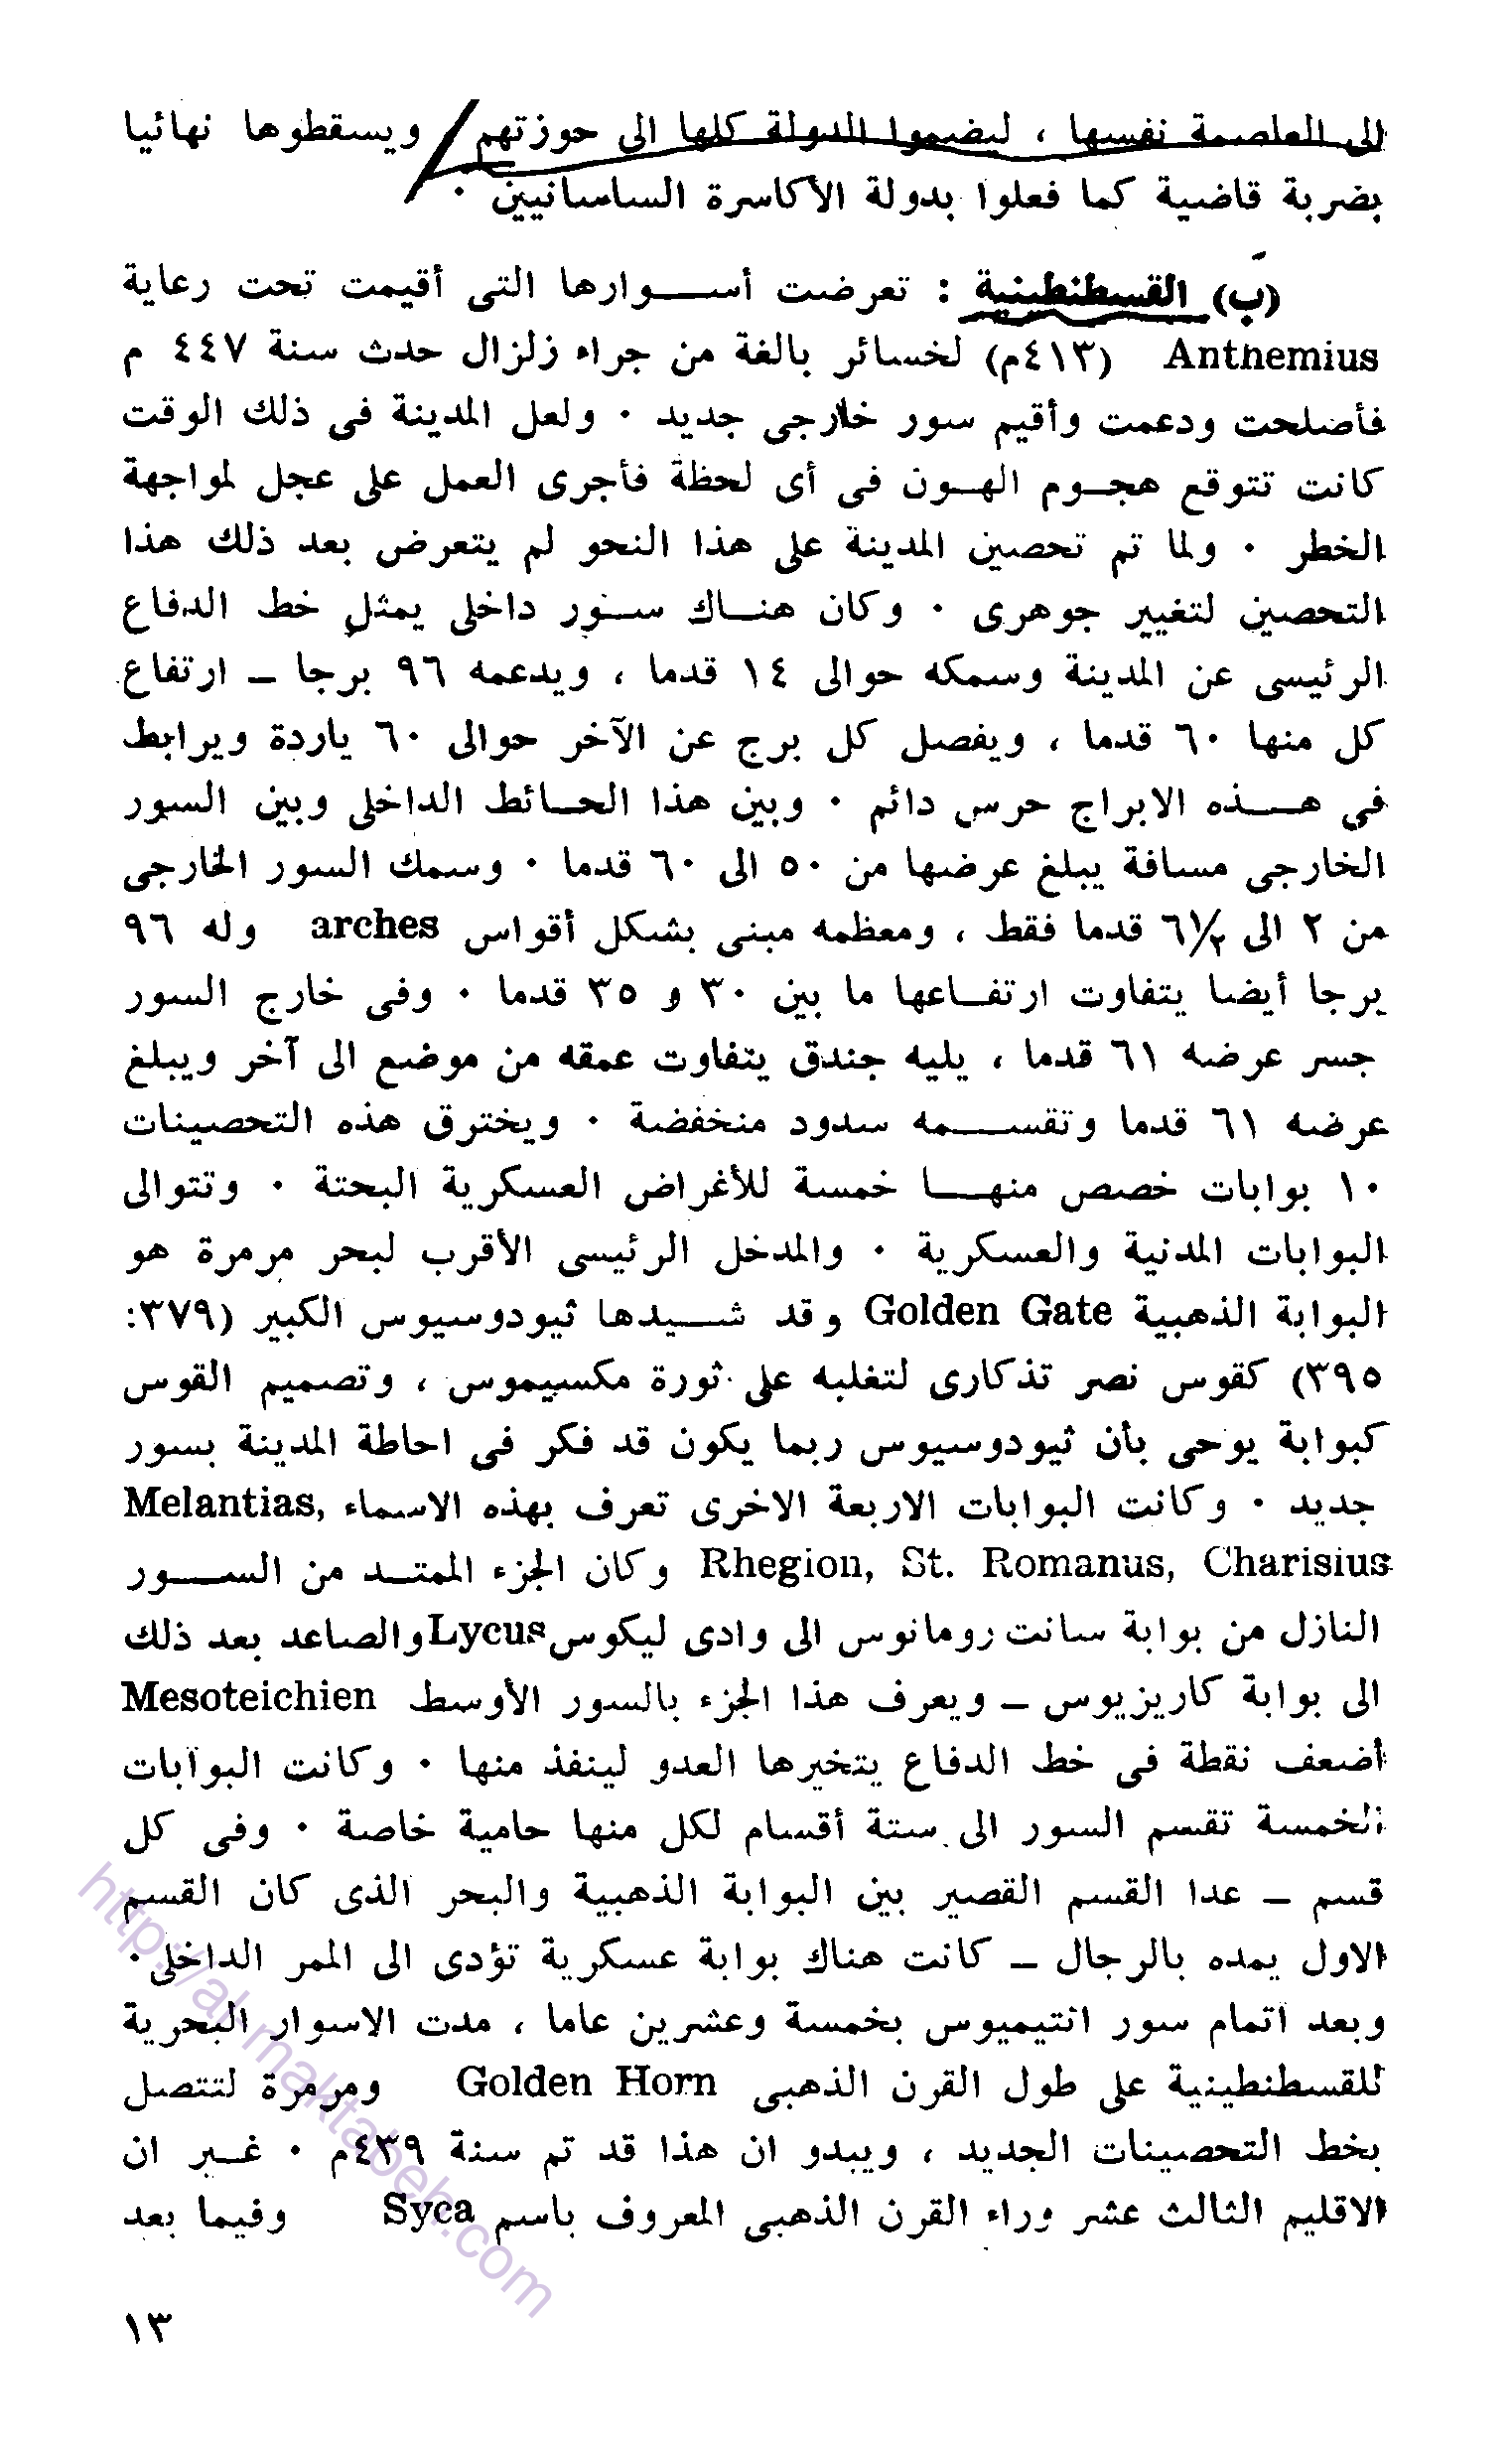 الى العاصمة نفسها ، ليضموا الدولة كلها الى حوزتهم ويسقطوها نهائيا
بضربة قاضية كما فعلوا بدولة الأكاسرة الساسانيين ٠
(ب) القسطنطينية : تعرضت أســـوارها التى أقيمت تحت رعاية
Anthemius (٤١٣م) لخسائر بالغة من جراء زلزال حدث سنة ٤٤٧ م
فأصلحت ودعمت وأقيم سور خارجى جديد ٠ ولعل المدينة فى ذلك الوقت
كانت تتوقع هجـوم الهـون فى أى لحظة فأجرى العمل على عجل لمواجهة
الخطر ٠ ولما تم تحصين المدينة على هذا النحو لم يتعرض بعد ذلك هذا
التحصين لتغيير جوهرى ٠ وكان هنـاك سـور داخلى يمثل خط الدفاع
الرئيسى عن المدينة وسمكه حوالى ١٤ قدما ، ويدعمه ٩٦ برجا – ارتفاع
كل منها ٦٠ قدما ، ويفصل كل برج عن الآخر حوالى ٦٠ ياردة ويرابط
فى هــذه الابراج حرس دائم ٠ وبين هذا الحـائط الداخلى وبين السور
الخارجى مسافة يبلغ عرضها من ٥٠ الى ٦٠ قدما ٠ وسمك السور الخارجى
من ٢ الى ٦١⁄٢ قدما فقط ، ومعظمه مبنى بشكل أقواس arches وله ٩٦
برجا أيضا يتفاوت ارتفـاعها ما بين ٣٠ و ٣٥ قدما ٠ وفى خارج السور
جسر عرضه ٦١ قدما ، يليه خندق يتفاوت عمقه من موضع الى آخر ويبلغ
عرضه ٦١ قدما وتقســـمه سدود منخفضة ٠ ويخترق هذه التحصينات
١٠ بوابات خصص منهــا خمسة للأغراض العسكرية البحتة ٠ وتتوالى
البوابات المدنية والعسكرية ٠ والمدخل الرئيسى الأقرب لبحر مرمرة هو
البوابة الذهبية Golden Gate وقد شــيدها ثيودوسيوس الكبير (٣٧٩:
٣٩٥) كقوس نصر تذكارى لتغلبه على ثورة مكسيموس ، وتصميم القوس
كبوابة يوحى بأن ثيودوسيوس ربما يكون قد فكر فى احاطة المدينة بسور
جديد ٠ وكانت البوابات الاربعة الاخرى تعرف بهذه الاسماء Melantias,
Rhegion, St. Romanus, Charisius وكان الجزء الممتـد من الســـور
النازل من بوابة سانت رومانوس الى وادى ليكوس Lycus والصاعد بعد ذلك
الى بوابة كاريزيوس – ويعرف هذا الجزء بالسور الأوسط Mesoteichien
أضعف نقطة فى خط الدفاع يتخيرها العدو لينفذ منها ٠ وكانت البوابات
الخمسة تقسم السور الى ستة أقسام لكل منها حامية خاصة ٠ وفى كل
قسم – عدا القسم القصير بين البوابة الذهبية والبحر الذى كان القسم
الاول يمده بالرجال – كانت هناك بوابة عسكرية تؤدى الى الممر الداخلى ٠
وبعد اتمام سور انتيميوس بخمسة وعشرين عاما ، مدت الاسوار البحرية
للقسطنطينية على طول القرن الذهبى Golden Horn ومرمرة لتتصل
بخط التحصينات الجديد ، ويبدو ان هذا قد تم سنة ٤٣٩م ٠ غـير ان
الاقليم الثالث عشر وراء القرن الذهبى المعروف باسم Syca وفيما بعد
١٣
http://al-maktabeh.com